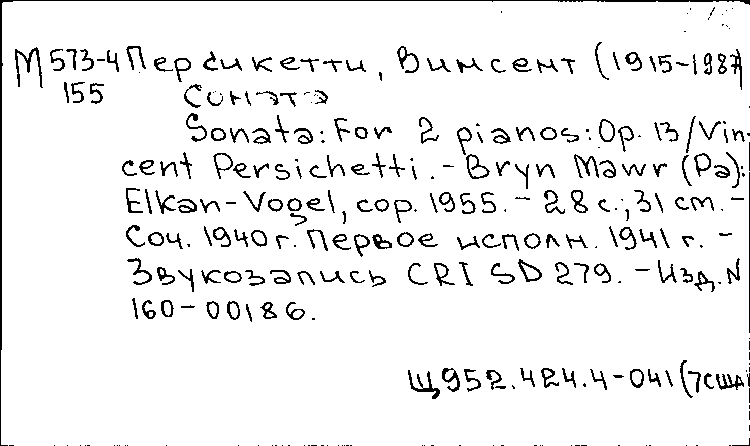 М 573-4 Персикетти, Винсент (1915-1987
155 Соната
Sonata: For 2 pianos: Op. 13/Vin-
cent Persichetti. - Bryn Mawr (Pa):
Elkan-Vogel, cop. 1955. - 28 с.; 31 cm. -
Соч. 1940 г. Первое исполн. 1941 г. -
Звукозапись CRI SD 279. - Изд. N
160-00186.
Щ952.424.4-041(7США